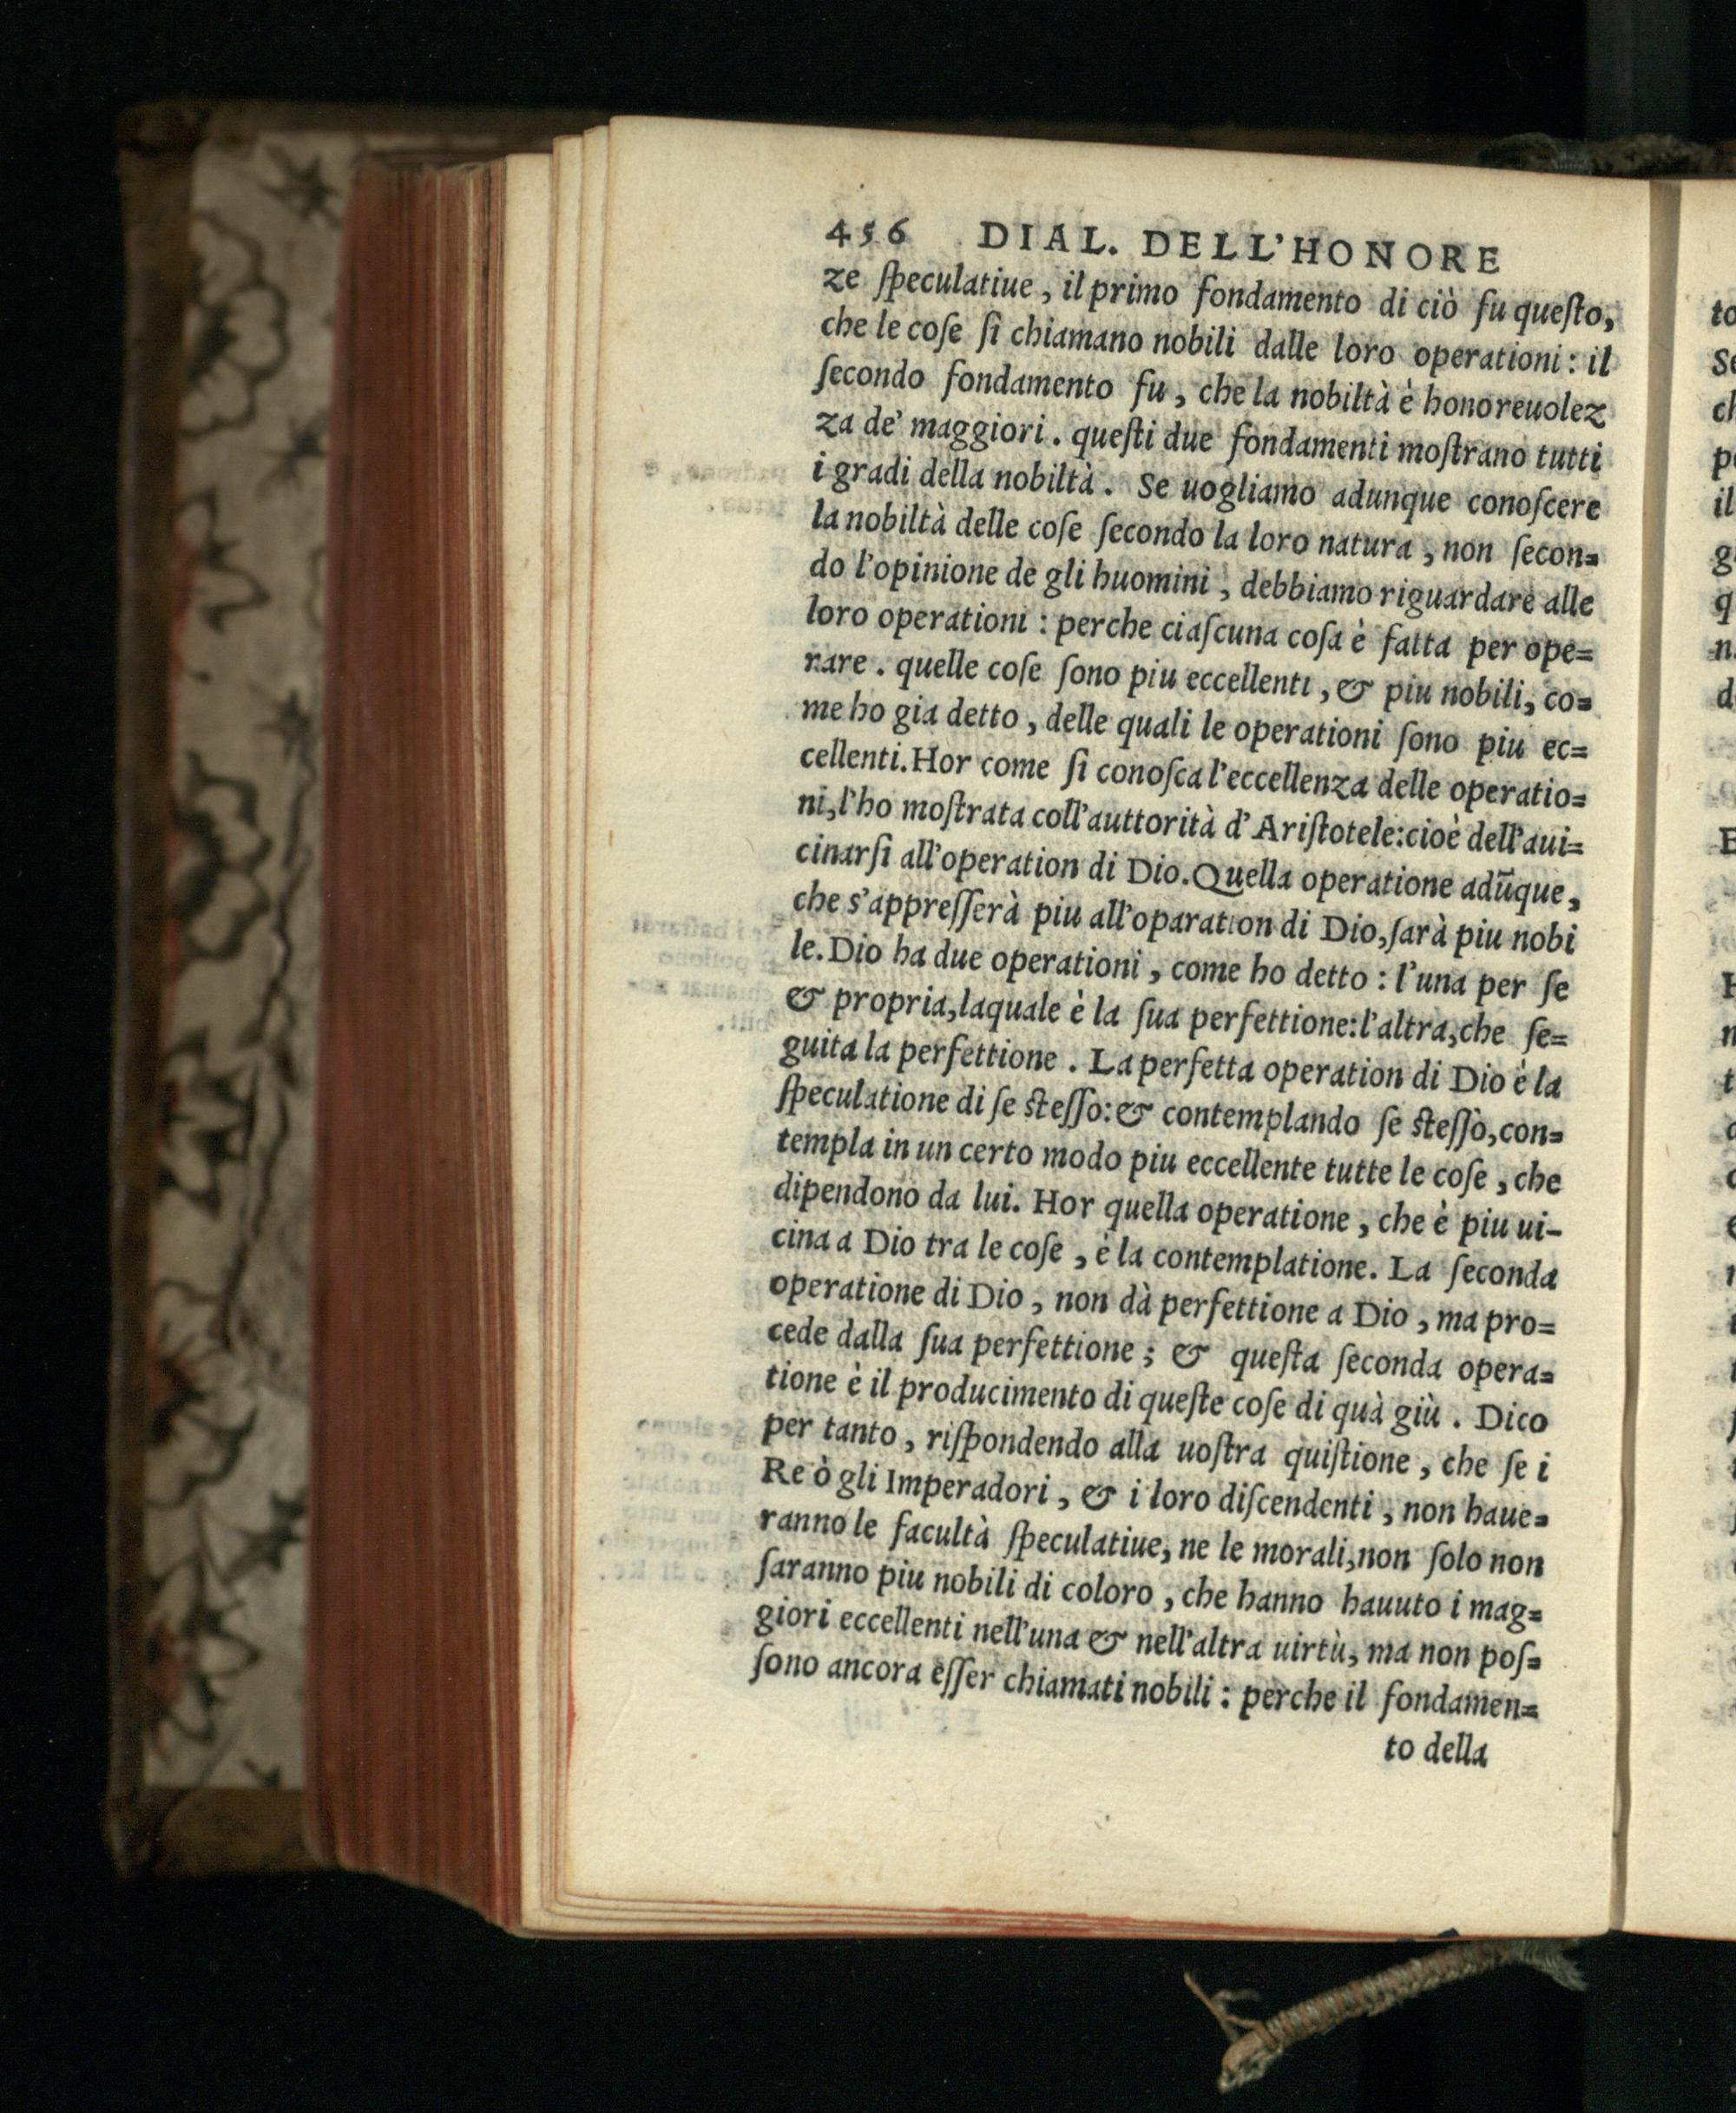 456 DIAL. DELL'HONORE
ze ſpeculatiue, il primo fondamento di ciò fu queſto,
che le coſe ſi chiamano nobili dalle loro operationi: il
ſecondo fondamento fu, che la nobiltà è honoreuolez
za de' maggiori. queſti due fondamenti moſtrano tutti
i gradi della nobiltà. Se uogliamo adunque conoſcere
la nobiltà delle coſe ſecondo la loro natura, non ſecon=
do l'opinione de gli huomini, debbiamo riguardare alle
loro operationi: perche ciaſcuna coſa è fatta per ope=
rare. quelle coſe ſono piu eccellenti, & piu nobili, co=
me ho gia detto, delle quali le operationi ſono piu ec=
cellenti. Hor come ſi conoſca l'eccellenza delle operatio=
ni, l'ho moſtrata coll'auttorità d'Ariſtotele: cioè dell'aui=
cinarſi all'operation di Dio. Quella operatione adũque,
che s'appreſſerà piu all'oparation di Dio, ſarà piu nobi
le. Dio ha due operationi, come ho detto: l'una per ſe
& propria, laquale è la ſua perfettione: l'altra, che ſe=
guita la perfettione. La perfetta operation di Dio è la
ſpeculatione di ſe ſteſſo: & contemplando ſe ſteſſo, con=
templa in un certo modo piu eccellente tutte le coſe, che
dipendono da lui. Hor quella operatione, che è piu ui-
cina a Dio tra le coſe, è la contemplatione. La ſeconda
operatione di Dio, non dà perfettione a Dio, ma pro=
cede dalla ſua perfettione; & queſta ſeconda opera=
tione è il producimento di queſte coſe di quà giù. Dico
per tanto, riſpondendo alla uoſtra quiſtione, che ſe i
Re ò gli Imperadori, & i loro diſcendenti, non haue=
ranno le facultà ſpeculatiue, ne le morali, non ſolo non
ſaranno piu nobili di coloro, che hanno hauuto i mag=
giori eccellenti nell'una & nell'altra uirtù, ma non poſ=
ſono ancora eſſer chiamati nobili: perche il fondamen=
to della